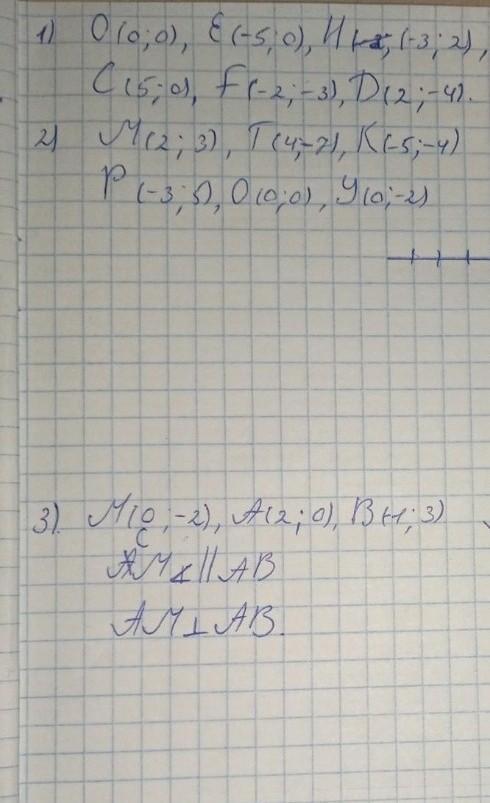 1) O(0;0), E(-5;0), H (-3;2),
C(5;0), F(-2;-3), D(2;-4).
2) M(2;3), T(4;-7), K(-5;-4)
P(-3;5), O(0;0), У(0;-2)
3). M(0;-2), A(2;0), B(-1;3)
C
M || AB
AM⊥AB.